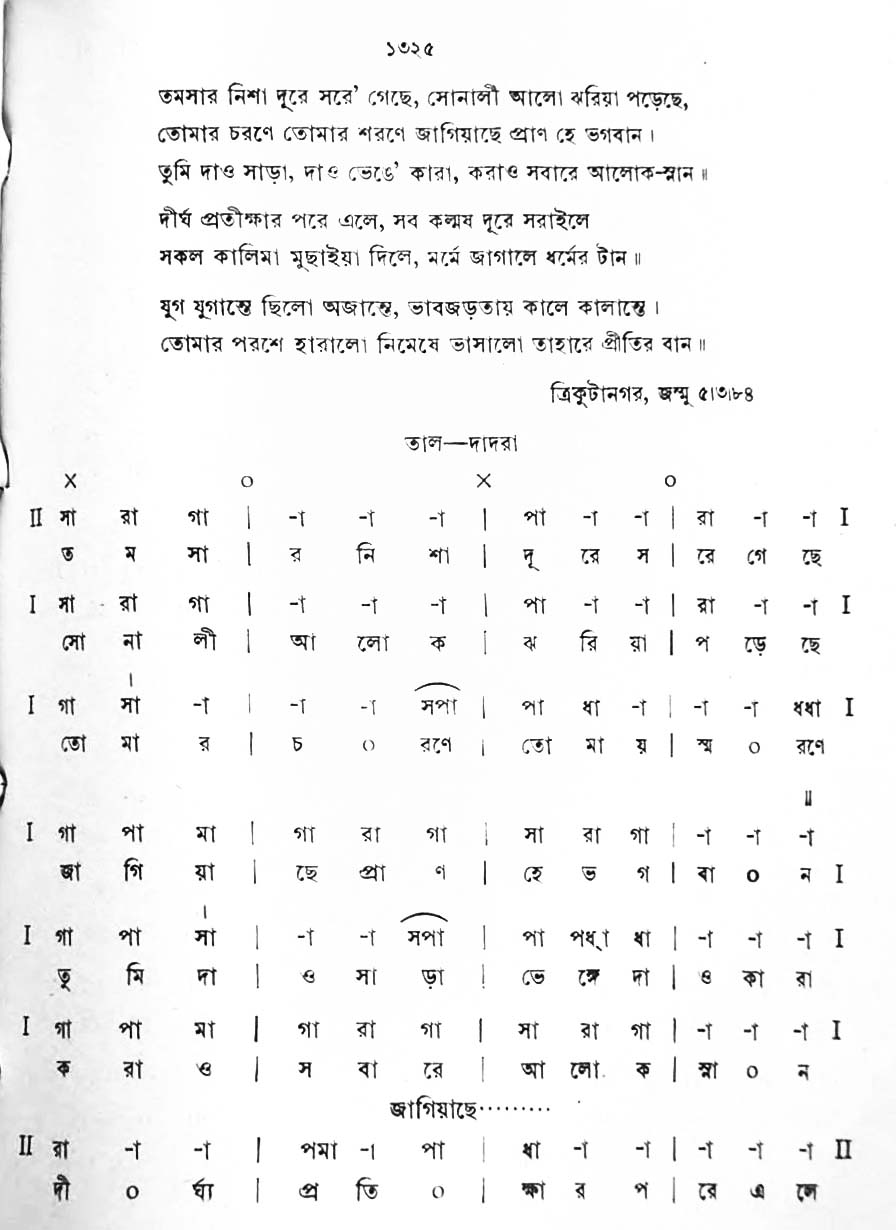 ১৩২৫
তমসার নিশা দূরে সরে' গেছে, সোনালী আলো ঝরিয়া পড়েছে,
তোমার চরণে তোমার শরণে জাগিয়াছে প্রাণ হে ভগবান।
তুমি দাও সাড়া, দাও ভেঙে' কারা, করাও সবারে আলোক-স্নান॥
দীর্ঘ প্রতীক্ষার পরে এলে, সব কল্মষ দূরে সরাইলে
সকল কালিমা মুছাইয়া দিলে, মর্মে জাগালে ধর্মের টান॥
যুগ যুগান্তে ছিলো অজান্তে, ভাবজড়তায় কালে কালান্তে।
তোমার পরশে হারালো নিমেষে ভাসালো তাহারে প্রীতির বান॥
ত্রিকুটানগর, জম্মু ৫।৩।৮৪
তাল—দাদরা
× ০ × ০
II সা রা গা | -া -া -া | পা -া -া | রা -া -া I
ত ম সা | র নি শা | দূ রে স | রে গে ছে
I সা রা গা | -া -া -া | পা -া -া | রা -া -া I
সো না লী | আ লো ক | ঝ রি য়া | প ড়ে ছে
I গা র্সা -া | -া -া সপা | পা ধা -া | -া -া ধধা I
তো মা র | চ ০ রণে | তো মা য় | স্ম ০ রণে
॥
I গা পা মা | গা রা গা | সা রা গা | -া -া -া
জা গি য়া | ছে প্রা ণ | হে ভ গ | বা ০ ন I
I গা পা র্সা | -া -া সপা | পা পধ্া ধা | -া -া -া I
তু মি দা | ও সা ড়া | ভে ঙ্গে দা | ও কা রা
I গা পা মা | গা রা গা | সা রা গা | -া -া -া I
ক রা ও | স বা রে | আ লো ক | স্না ০ ন
জাগিয়াছে·········
II রা -া -া | পমা -া পা | ধা -া -া | -া -া -া II
দী ০ র্ঘা | প্র তি ০ | ক্ষা র প | রে এ লে